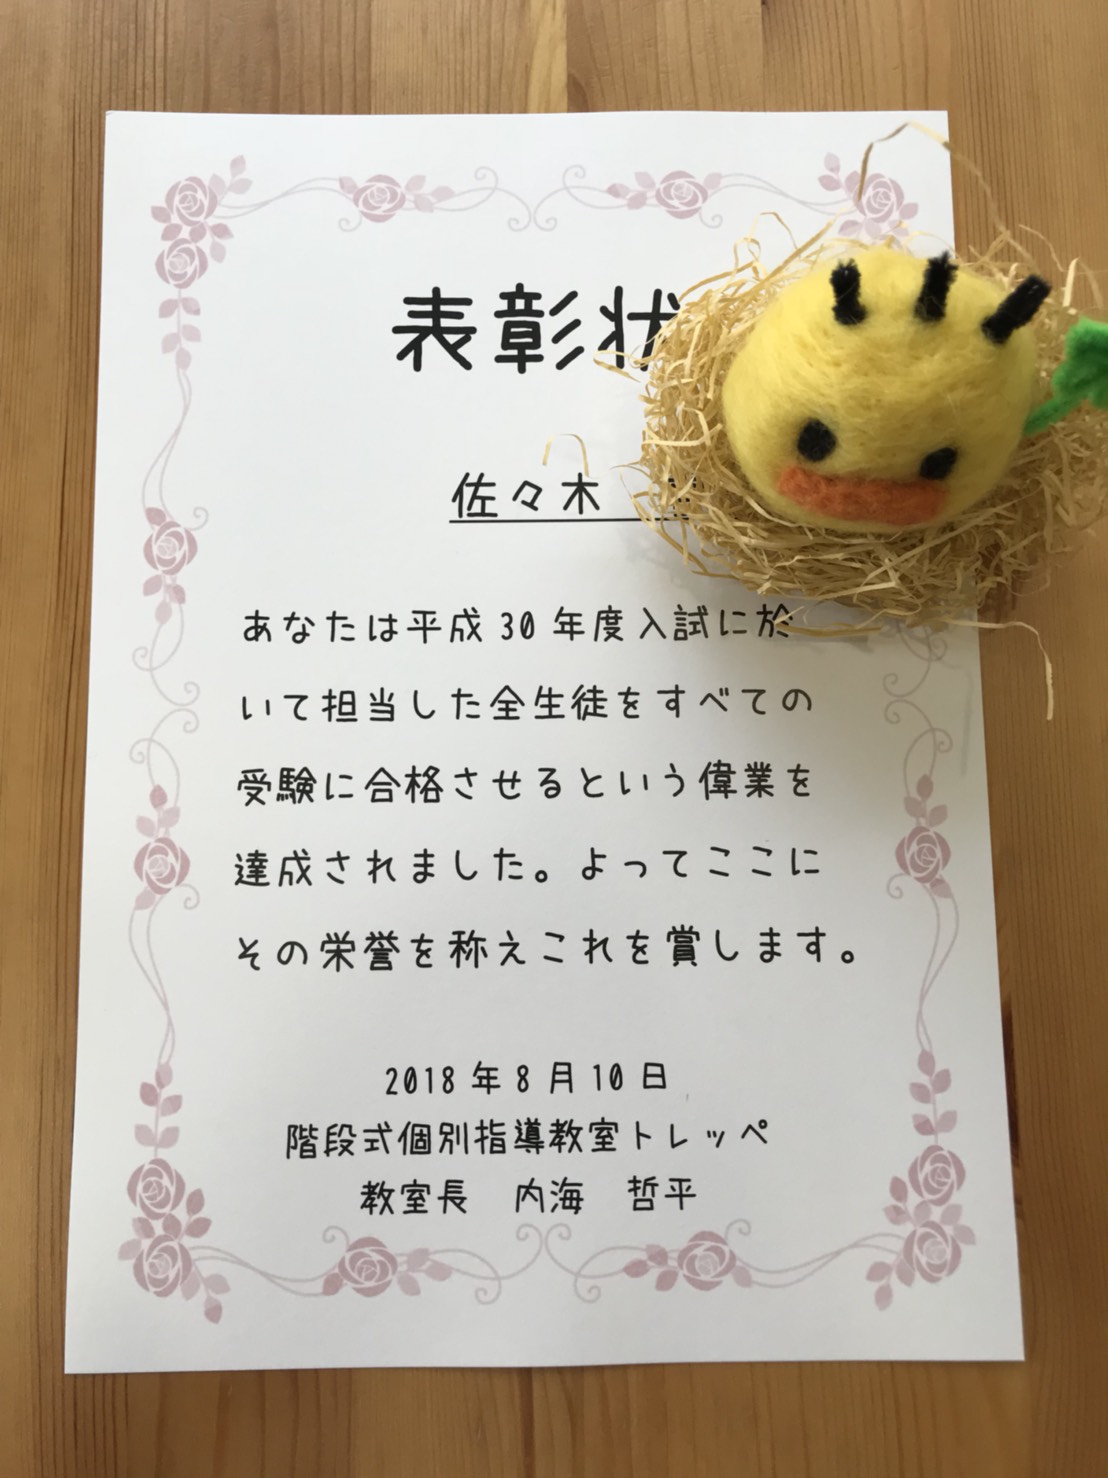 表彰状
佐々木
あなたは平成30年度入試に於
いて担当した全生徒をすべての
受験に合格させるという偉業を
達成されました。よってここに
その栄誉を称えこれを賞します。
2018年8月10日
階段式個別指導教室トレッペ
教室長 内海 哲平